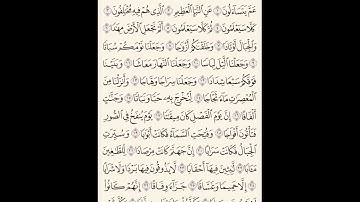 عَمَّ يَتَسَآءَلُونَ ١ عَنِ ٱلنَّبَإِ ٱلْعَظِيمِ ٢ ٱلَّذِى هُمْ فِيهِ مُخْتَلِفُونَ ٣
كَلَّا سَيَعْلَمُونَ ٤ ثُمَّ كَلَّا سَيَعْلَمُونَ ٥ أَلَمْ نَجْعَلِ ٱلْأَرْضَ مِهَٰدًا ٦
وَٱلْجِبَالَ أَوْتَادًا ٧ وَخَلَقْنَٰكُمْ أَزْوَٰجًا ٨ وَجَعَلْنَا نَوْمَكُمْ سُبَاتًا
٩ وَجَعَلْنَا ٱلَّيْلَ لِبَاسًا ١٠ وَجَعَلْنَا ٱلنَّهَارَ مَعَاشًا ١١ وَبَنَيْنَا
فَوْقَكُمْ سَبْعًا شِدَادًا ١٢ وَجَعَلْنَا سِرَاجًا وَهَّاجًا ١٣ وَأَنزَلْنَا مِنَ
ٱلْمُعْصِرَٰتِ مَآءً ثَجَّاجًا ١٤ لِّنُخْرِجَ بِهِۦ حَبًّا وَنَبَاتًا ١٥ وَجَنَّٰتٍ
أَلْفَافًا ١٦ إِنَّ يَوْمَ ٱلْفَصْلِ كَانَ مِيقَٰتًا ١٧ يَوْمَ يُنفَخُ فِى ٱلصُّورِ
فَتَأْتُونَ أَفْوَاجًا ١٨ وَفُتِحَتِ ٱلسَّمَآءُ فَكَانَتْ أَبْوَٰبًا ١٩ وَسُيِّرَتِ
ٱلْجِبَالُ فَكَانَتْ سَرَابًا ٢٠ إِنَّ جَهَنَّمَ كَانَتْ مِرْصَادًا ٢١ لِّلطَّٰغِينَ
مَـَٔابًا ٢٢ لَّٰبِثِينَ فِيهَآ أَحْقَابًا ٢٣ لَّا يَذُوقُونَ فِيهَا بَرْدًا وَلَا شَرَابًا
٢٤ إِلَّا حَمِيمًا وَغَسَّاقًا ٢٥ جَزَآءً وِفَاقًا ٢٦ إِنَّهُمْ كَانُوا۟